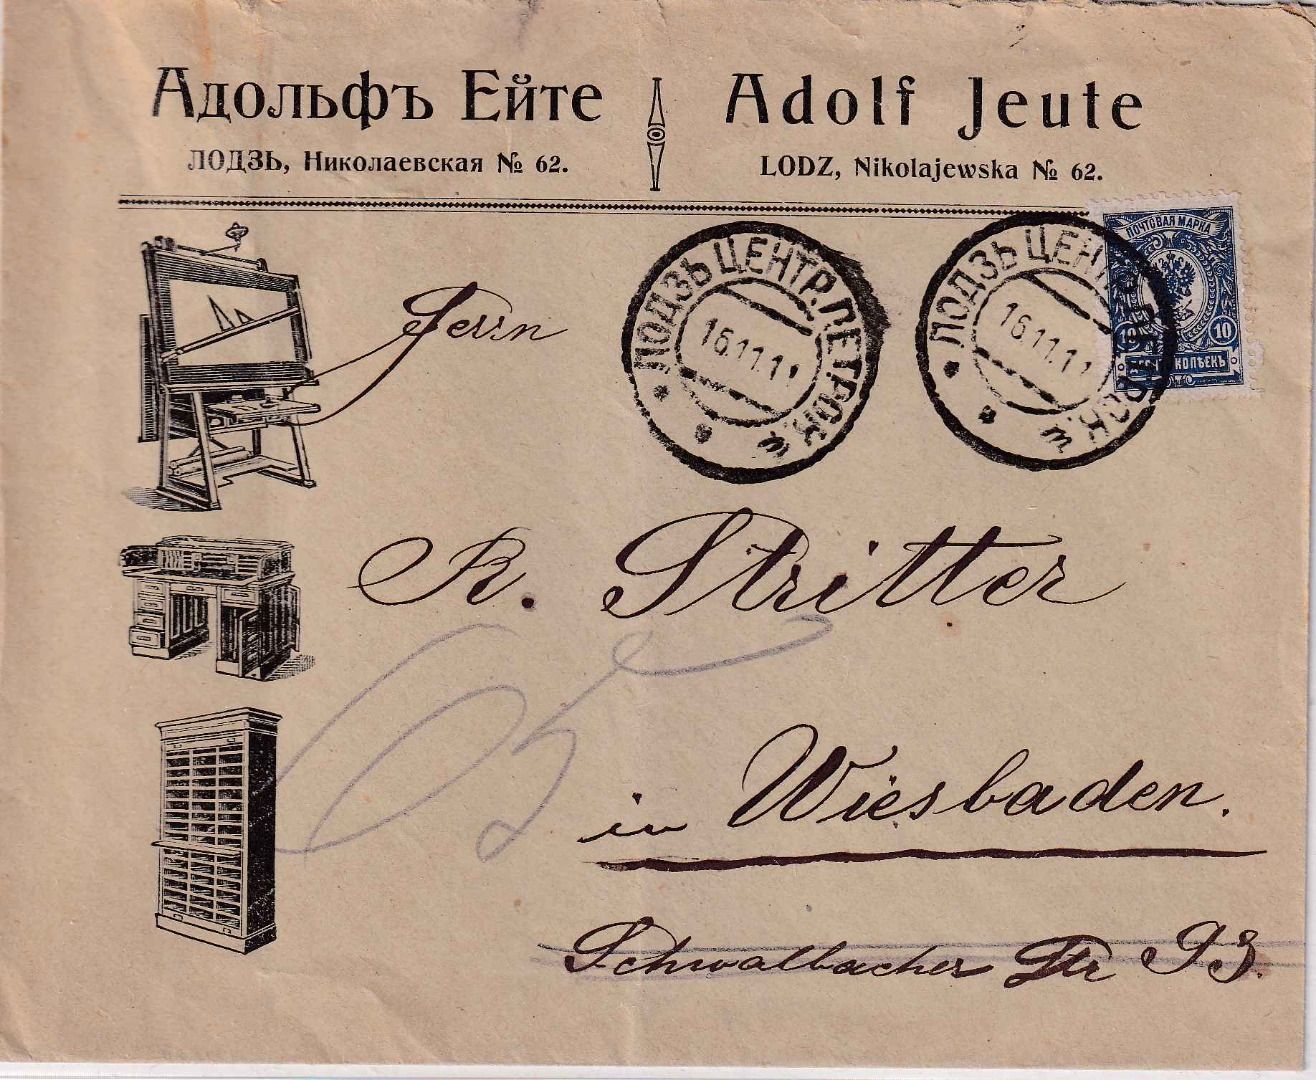 Адольфъ Ейте
ЛОДЗЬ, Николаевская № 62.
Adolf Jeute
LODZ, Nikolajewska № 62.
ЛОДЗЬ ЦЕНТР. ПЕТРОК.
16.11.11
ЛОДЗЬ ЦЕНТР. ПЕТРОК.
16.11.11
ПОЧТОВАЯ МАРКА
10 10
КОПѢЕКЪ
Herrn
R. Stritter
in Wiesbaden.
Schwalbacher Str